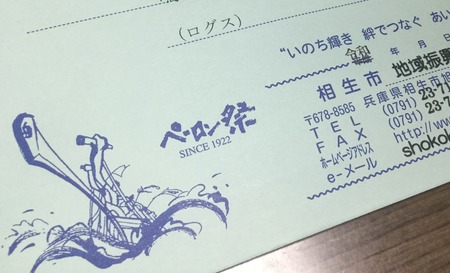 (ログス)
"いのち輝き 絆でつなぐ あい
令和 年 月 日
相生市 地域振興
〒678-8585 兵庫県相生市旭
TEL (0791) 23-71
FAX (0791) 23-7
ホームページアドレス http://ww
e-メール shokok
ペーロン祭
SINCE 1922